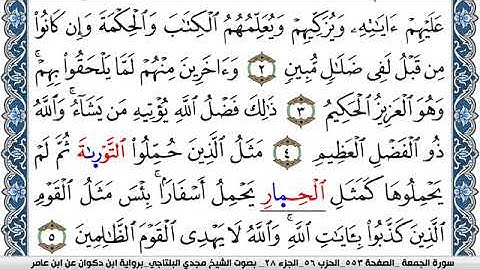 عَلَيْهِمْ ءَايَٰتِهِۦ وَيُزَكِّيهِمْ وَيُعَلِّمُهُمُ ٱلْكِتَٰبَ وَٱلْحِكْمَةَ وَإِن كَانُوا۟
مِن قَبْلُ لَفِى ضَلَٰلٍ مُّبِينٍ ٢ وَءَاخَرِينَ مِنْهُمْ لَمَّا يَلْحَقُوا۟ بِهِمْ ۚ
وَهُوَ ٱلْعَزِيزُ ٱلْحَكِيمُ ٣ ذَٰلِكَ فَضْلُ ٱللَّهِ يُؤْتِيهِ مَن يَشَآءُ ۚ وَٱللَّهُ
ذُو ٱلْفَضْلِ ٱلْعَظِيمِ ٤ مَثَلُ ٱلَّذِينَ حُمِّلُوا۟ ٱلتَّوْرَىٰةَ ثُمَّ لَمْ
يَحْمِلُوهَا كَمَثَلِ ٱلْحِمَارِ يَحْمِلُ أَسْفَارًۢا ۚ بِئْسَ مَثَلُ ٱلْقَوْمِ
ٱلَّذِينَ كَذَّبُوا۟ بِـَٔايَٰتِ ٱللَّهِ ۚ وَٱللَّهُ لَا يَهْدِى ٱلْقَوْمَ ٱلظَّٰلِمِينَ ٥
سورة الجمعة_ الصفحة ٥٥٣_ الحزب ٥٦_ الجزء ٢٨_ بصوت الشيخ مجدي البلتاجي_برواية ابن ذكوان عن ابن عامر